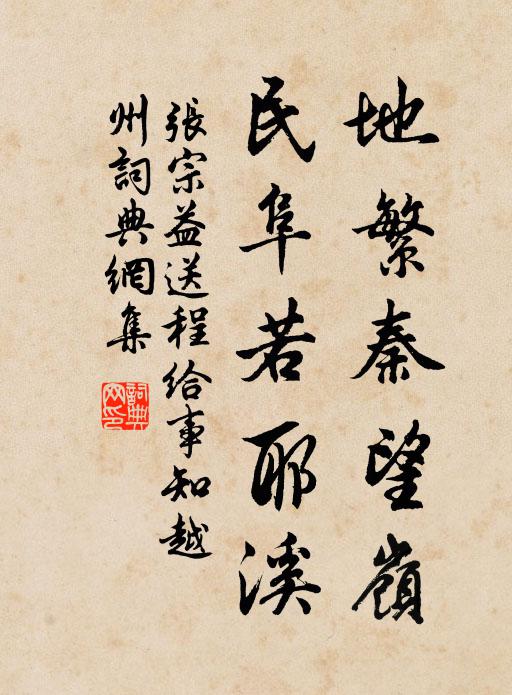 地繁秦望嶺
民阜若耶溪
張宗益送程給事知越
州詞典網集
詞典
网印